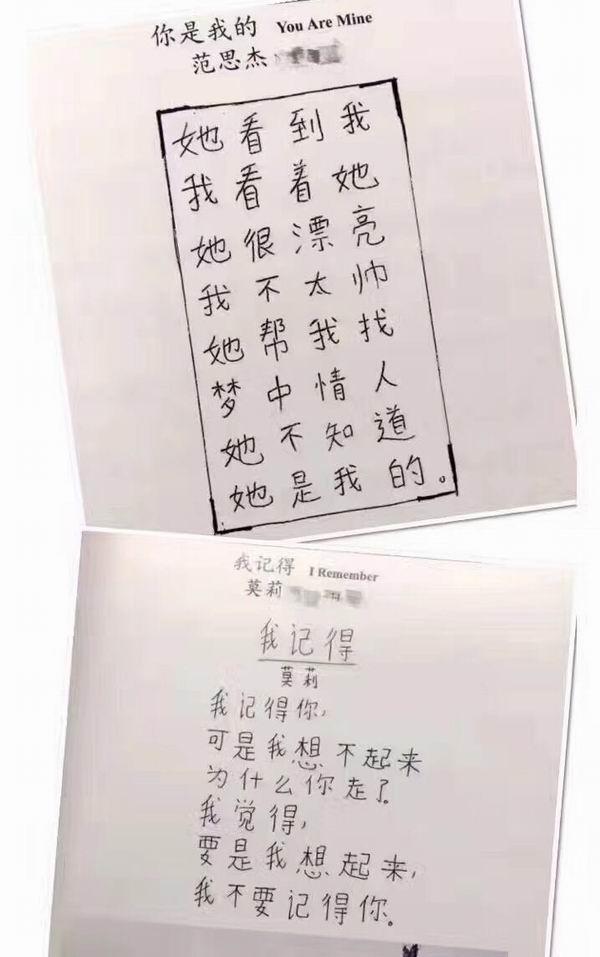 你是我的 You Are Mine
范思杰
她看到我
我看着她
她很漂亮
我不太帅
她帮我找
梦中情人
她不知道
她是我的。
我记得 I Remember
莫莉
我记得
莫莉
我记得你，
可是我想不起来
为什么你走了？
我觉得，
要是我想起来，
我不要记得你。